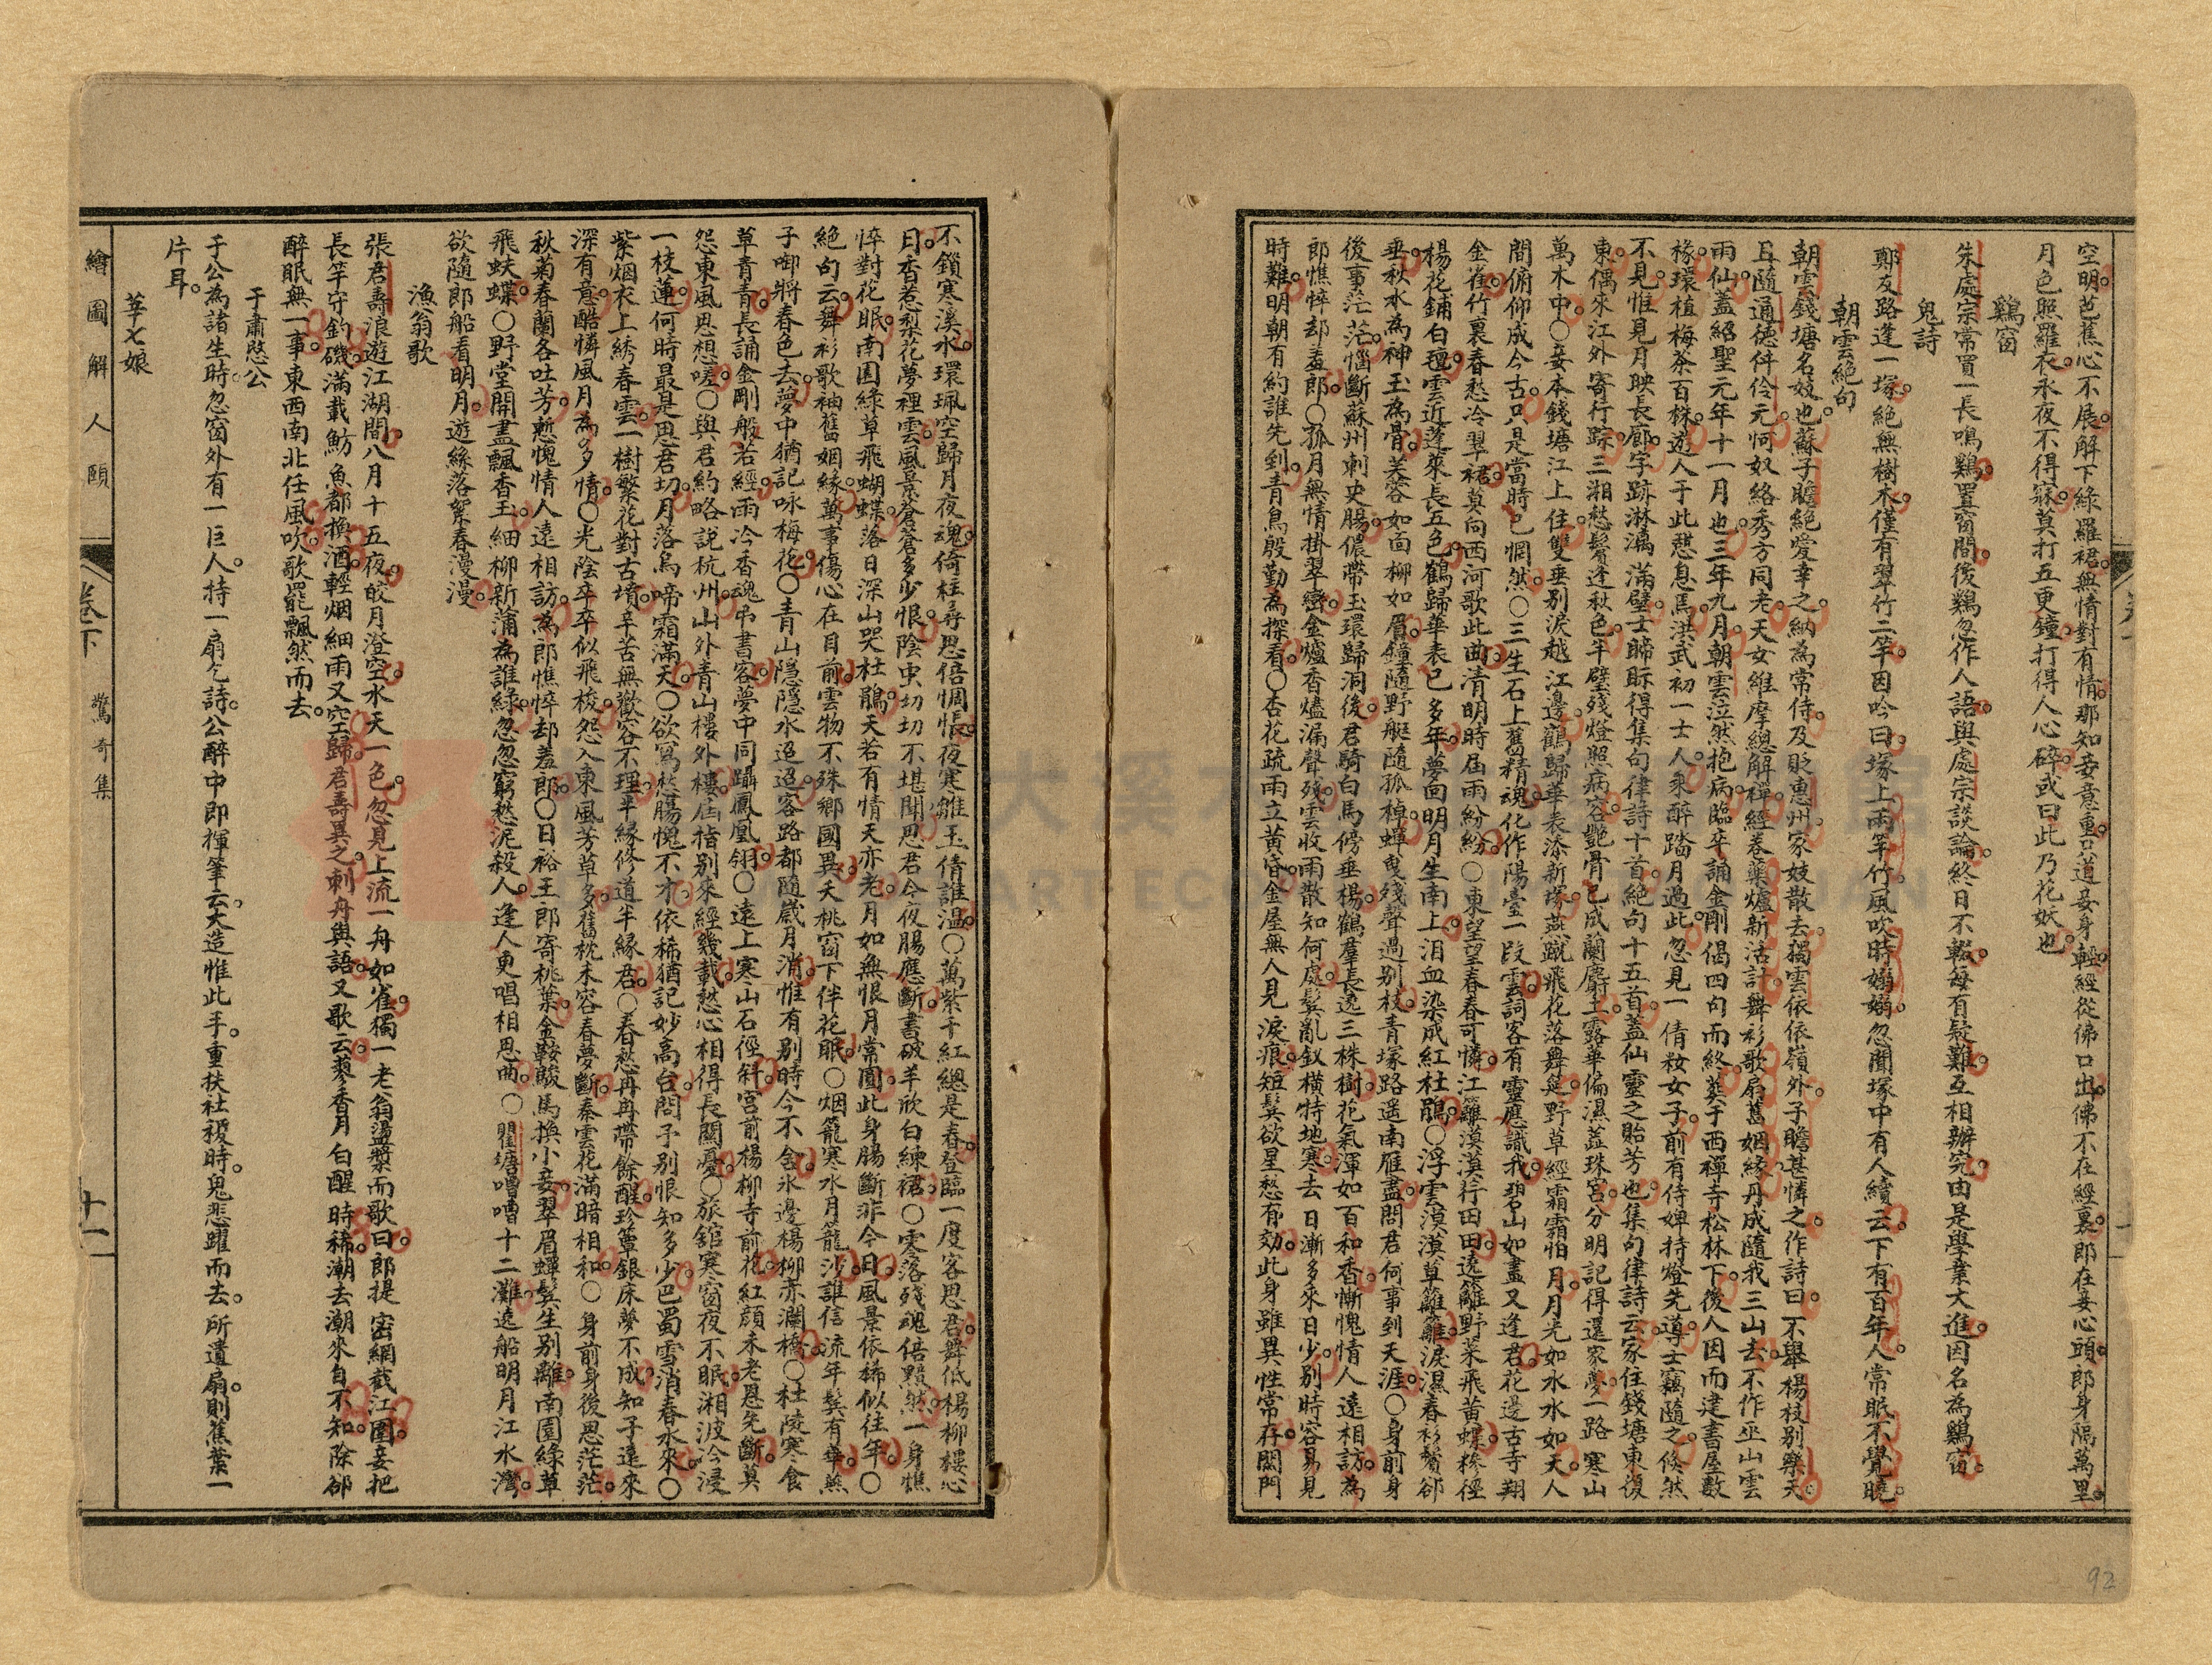 空明芭蕉心不展解下綠羅裙無情對有情那知妾意重只道妾身輕經從佛口出佛不在經裏郎在妾心頭郎身隔萬里
月色照羅衣永夜不得寐莫打五更鐘打得人心碎或曰此乃花妖也
鷄窗
朱處宗常買一長鳴鷄置窗間後鷄忽作人語與處宗談論終日不輟每有疑難互相辦究由是學業大進因名為鷄窗
鬼詩
鄭友路逢一塚絕無樹木僅有翠竹二竿因吟曰塚上兩竿竹風吹時嫋嫋忽聞塚中有人續云下有百年人常眠不覺曉
朝雲絕句
朝雲錢塘名妓也蘇子瞻絕愛幸之納為常侍及貶惠州家妓散去獨雲依依嶺外子瞻甚憐之作詩曰不學楊枝別樂天
且隨通德伴伶元何奴絡秀方同老天女維摩總解禪經卷藥爐新活計舞衫歌扇舊姻緣丹成隨我三山去不作巫山雲
雨仙蓋紹聖元年十一月也三年九月朝雲泣然抱病臨卒誦金剛偈四句而終葬于西禪寺松林下後人因而建書屋數
椽環植梅茶百株遊人于此憩息馬洪武初一士人乘醉踏月過此忽見一倩粧女子前有侍婢持燈先導士竊隨之倏然
不見惟見月映長廊字跡淋漓滿壁士睇眎得集句律詩十首絕句十五首蓋仙靈之貽芳也集句律詩云家住錢塘東復
東偶來江外寄行踪三湘愁鬢逢秋色半壁殘燈照病容艷骨已成蘭麝土露華偏濕蕋珠宮分明記得還家夢一路寒山
萬木中〇妾本錢塘江上住雙垂別淚越江邊鶴歸華表添新塚燕蹴飛花落舞筵野草經霜霜怕月月光如水水如天人
間俯仰成今古只是當時已惘然〇三生石上舊精魂化作陽臺一段雲詞客有靈應識我碧山如畫又逢君花邊古寺翔
金雀竹裏春愁冷翠裙莫向西河歌此曲清明時屆雨紛紛〇東望望春春可憐江籬漠漠行田田遶籬野菜飛黃蝶糝徑
楊花鋪白氊雲近蓬萊長五色鶴歸華表已多年夢回明月生南上泪血染成紅杜鵑〇浮雲漠漠草籬籬淚濕春衫鬢卻
垂秋水為神玉為骨芙蓉如面柳如眉鐘隨野艇隨孤棹蟬曳殘聲過別枝青塚路遥南雁盡問君何事到天涯〇身前身
後事茫茫惱斷蘇州刺史腸儂帶玉環歸洞後君騎白馬傍垂楊鶴羣長遶三株樹花氣渾如百和香慚愧情人遠相訪為
郎憔悴却羞郎〇孤月無情掛翠巒金爐香燼漏聲殘雲收雨散知何處髮亂釵橫特地寒去日漸多來日少別時容易見
時難明朝有約誰先到青鳥殷勤為探看〇杏花疏雨立黃昏金屋無人見淚痕短鬂欲星愁有効此身雖異性常存閉門
不鎖寒溪水環珮空歸月夜魂倚柱尋思倍惆悵夜寒雖玉倩誰溫〇萬紫千紅總是春登臨一度客思君舞低楊柳樓心
月香惹梨花夢裡雲風景蒼蒼多少恨陰虫切切不堪聞思君今夜腸應斷書破羊欣白練裙〇零落殘魂倍黯然一身憔
悴對花眠南園綠草飛蝴蝶落日深山哭杜鵑天若有情天亦老月如無恨月常圓此身腸斷非今日風景依稀似往年〇
絕句云舞衫歌袖舊姻緣萬事傷心在目前雲物不殊鄉國異夭桃窗下伴花眠〇烟籠寒水月籠沙誰信流年鬂有華燕
子啣將春色去夢中猶記咏梅花〇青山隱隱水迢迢客路都隨歲月消惟有別時今不舍氷邊楊柳赤瀾橋〇杜陵寒食
草青青長誦金剛般若經雨冷香魂弔書客夢中同躡鳳凰翎〇遠上寒山石徑斜宮前楊柳寺前花紅顏未老恩先斷莫
怨東風思想嗟〇與君約略說杭州山外青山樓外樓屈指別來經幾載愁心相得長關憂〇旅舘寒窗夜不眠湘波冷浸
一枝蓮何時最是思君切月落烏啼霜滿天〇欲寫愁腸愧不才依稀猶記妙高台問予別恨知多少巴蜀雪消春水來〇
紫烟衣上綉春雲一樹繁花對古墳辛苦無歡容不理半緣修道半緣君〇春愁冉冉帶餘酲珍簟銀床夢不成知子遠來
深有意酷憐風月為多情〇光陰卒卒似飛梭怨入東風芳草多舊枕未容春夢斷秦雲花滿暗相和〇身前身後思茫茫
秋菊春蘭各吐芳慙愧情人遠相訪為郎憔悴却羞郎〇日裕王郎寄桃葉金鞍駿馬換小妾翠眉蟬髩生別離南園綠草
飛蚨蝶〇野堂開盡飄香玉細柳新蒲為誰綠忽忽窮愁泥殺人逢人更唱相思曲〇瞿塘嘈嘈十二灘遶船明月江水灣
欲隨郎船看明月遊絲落絮春漫漫
漁翁歌
張君壽浪遊江湖間八月十五夜皎月澄空水天一色忽見上流一舟如雀獨一老翁盪槳而歌曰郎提密網截江圍妾把
長竿守釣磯滿載魴魚都換酒輕烟細雨又空歸君壽異之刺舟與語又歌云蓼香月白醒時稀潮去潮來自不知除卻
醉眠無一事東西南北任風吹歌罷飄然而去
于肅愍公
于公為諸生時忽窗外有一巨人持一扇乞詩公醉中即揮筆云大造惟此手重扶社稷時鬼悲躍而去所遺扇則蕉葉一
片耳
華七娘
繪圖解人頤
卷下
驚奇集
十一
92